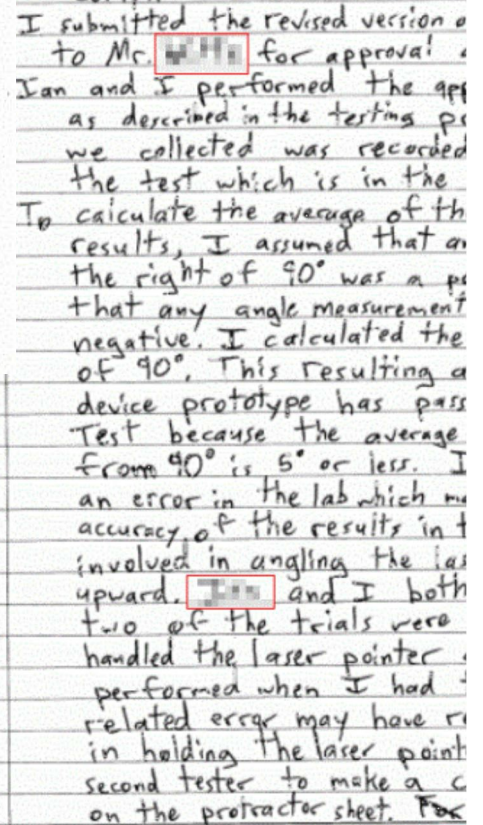 I submitted the revised version o
to Mr. for approval
Ian and I performed the app
as described in the testing pr
we collected was recorded
the test which is in the
To calculate the average of th
results, I assumed that an
the right of 90° was a po
that any angle measurement
negative. I calculated the
of 90°. This resulting a
device prototype has pass
Test because the average
from 90° is 5° or less. I
an error in the lab which ma
accuracy of the results in t
involved in angling the las
upward. and I both
two of the trials were
handled the laser pointer
performed when I had
related error may have re
in holding the laser point
second tester to make a c
on the protractor sheet. For